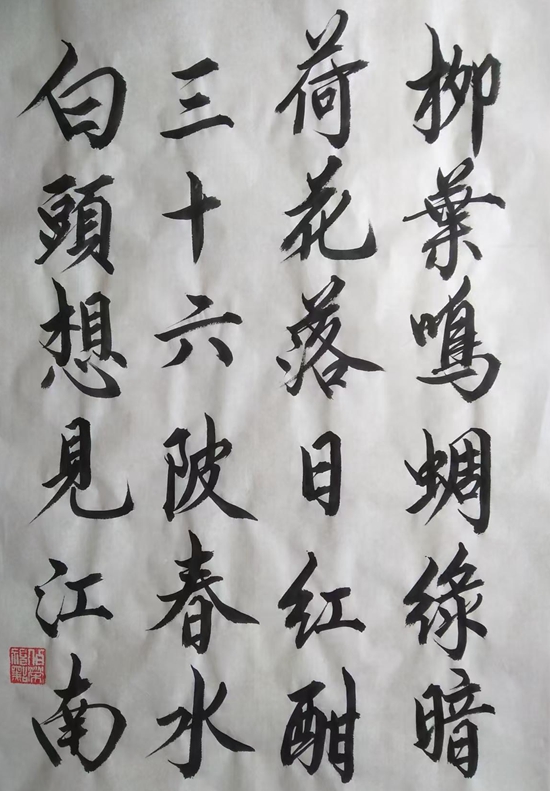 柳葉鳴蜩綠暗
荷花落日红酣
三十六陂春水
白頭想見江南